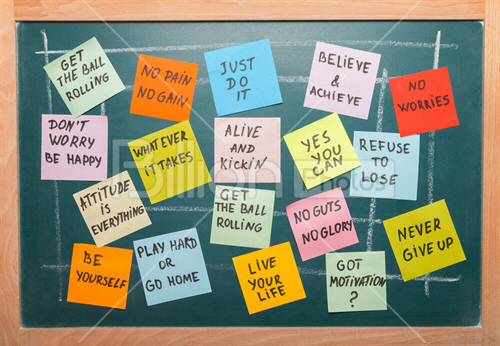 GET
THE BALL
ROLLING
NO PAIN
NO GAIN
JUST
DO
IT
BELIEVE
&
ACHIEVE
NO
WORRIES
DON'T
WORRY
BE HAPPY
WHATEVER
IT TAKES
ALIVE
AND
KICK'N
YES
YOU
CAN
REFUSE
TO
LOSE
ATTITUDE
IS
EVERYTHING
GET
THE BALL
ROLLING
NO GUTS
NO GLORY
NEVER
GIVE UP
BE
YOURSELF
PLAY HARD
OR
GO HOME
LIVE
YOUR
LIFE
GOT
MOTIVATION
?
Billion Photos